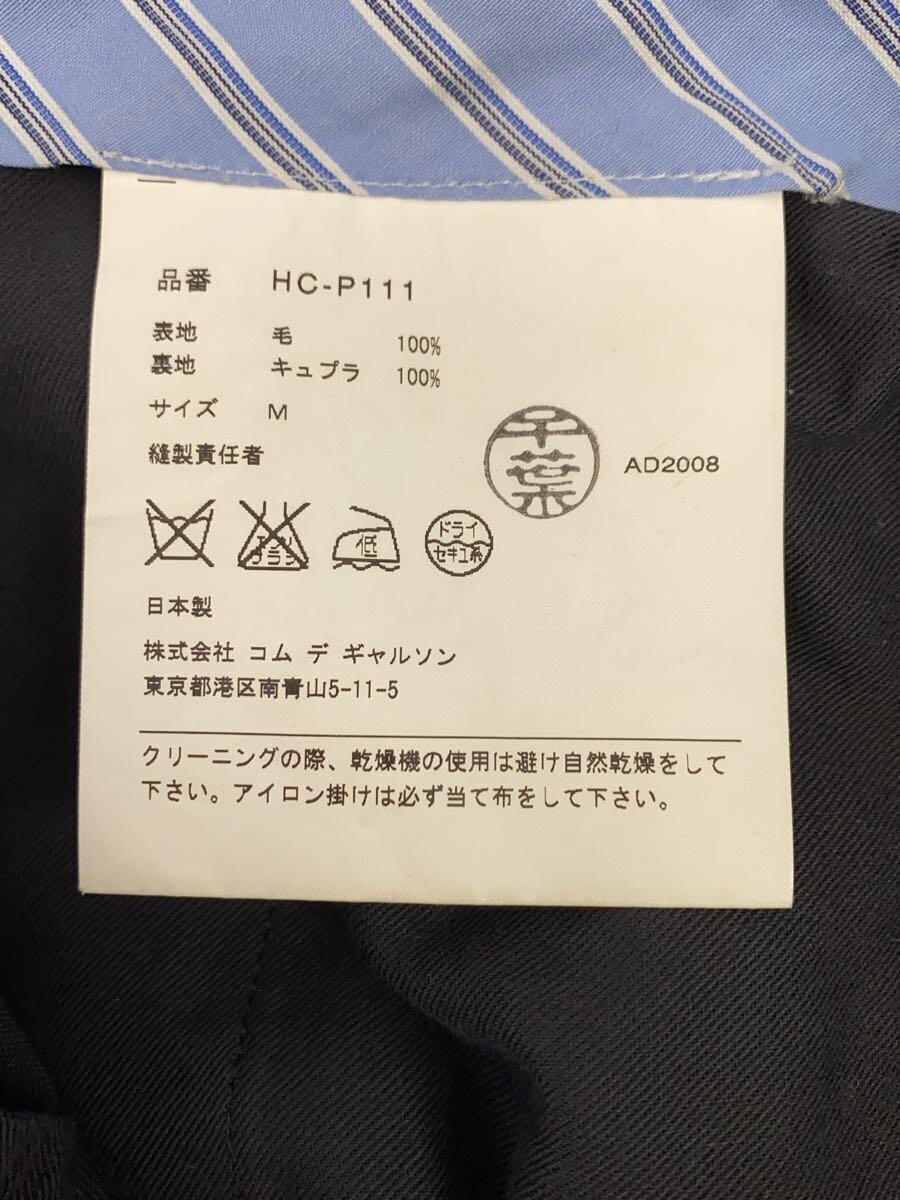 品番 HC-P111
表地 毛 100%
裏地 キュプラ 100%
サイズ M
縫製責任者 千葉 AD2008
エンソ
サラシ
低
ドライ
セキユ系
日本製
株式会社 コム デ ギャルソン
東京都港区南青山5-11-5
クリーニングの際、乾燥機の使用は避け自然乾燥をして
下さい。アイロン掛けは必ず当て布をして下さい。